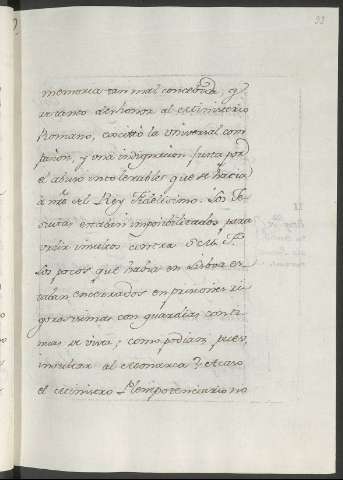 33
memoria tan mal concebida, y
de tanto deshonor al Ministerio
Romano, excitò la universal com
pasion, y una indignacion justa por
el abuso intolerable, que se hacia
à nrõ del Rey Fidelisimo. Los Je-
suitas estaban imposibilitados para
urdir insultos contra S. M. F.
Los pocos que habia en Lisboa es
taban encerrados en prisiones ri
gurosisimas con guardias conti
nuas de vista; como podian pues
insultar al Monarca? Acaso
el Ministro Plenipotenciario no